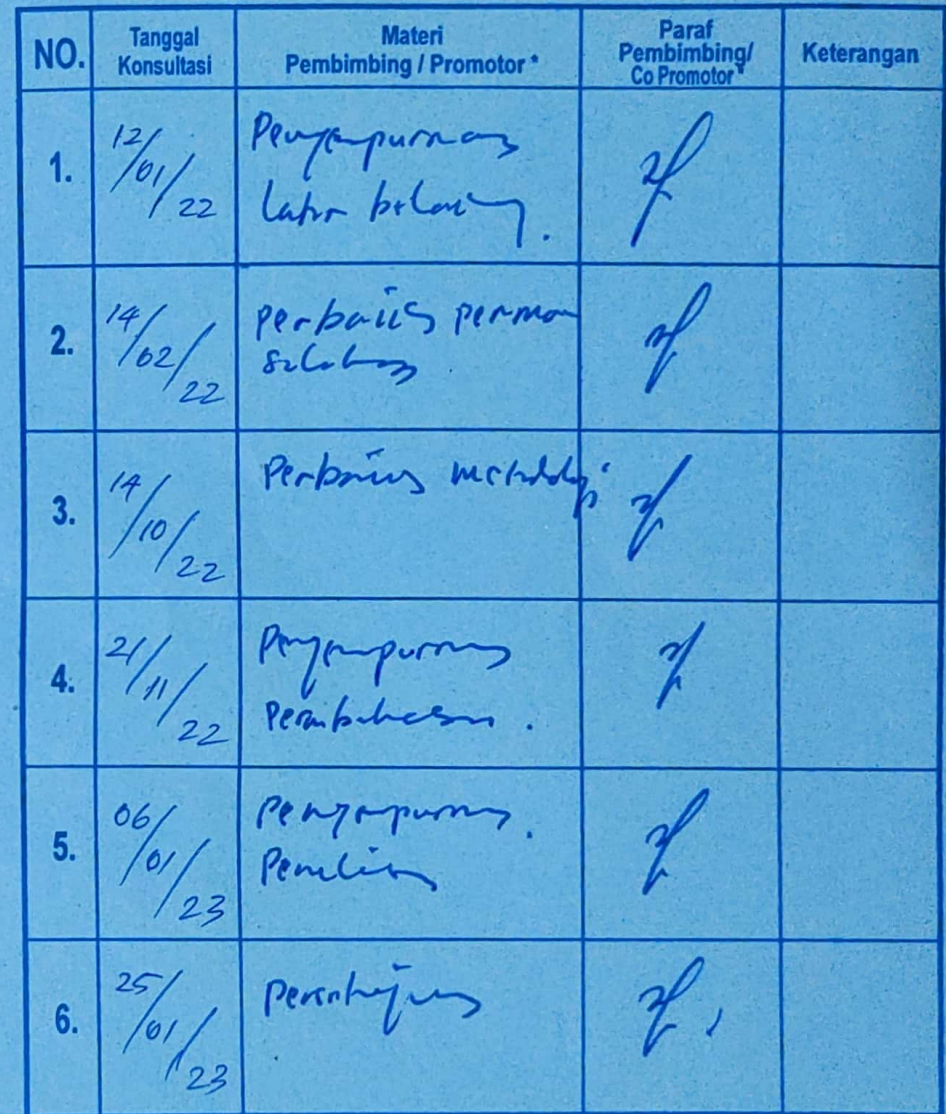 NO.
Tanggal
Konsultasi
Materi
Pembimbing / Promotor *
Paraf
Pembimbing/
Co Promotor *
Keterangan
1.
12/01/22
Penyempurnaan
latar belakang.
2.
14/02/22
Perbaikan permasa
salahan
3.
14/10/22
Perbaikan metodologi
4.
21/11/22
Penyempurnaan
Pembahasan.
5.
06/01/23
Penyempurnaan.
Penulisan
6.
25/01/23
Persetujuan